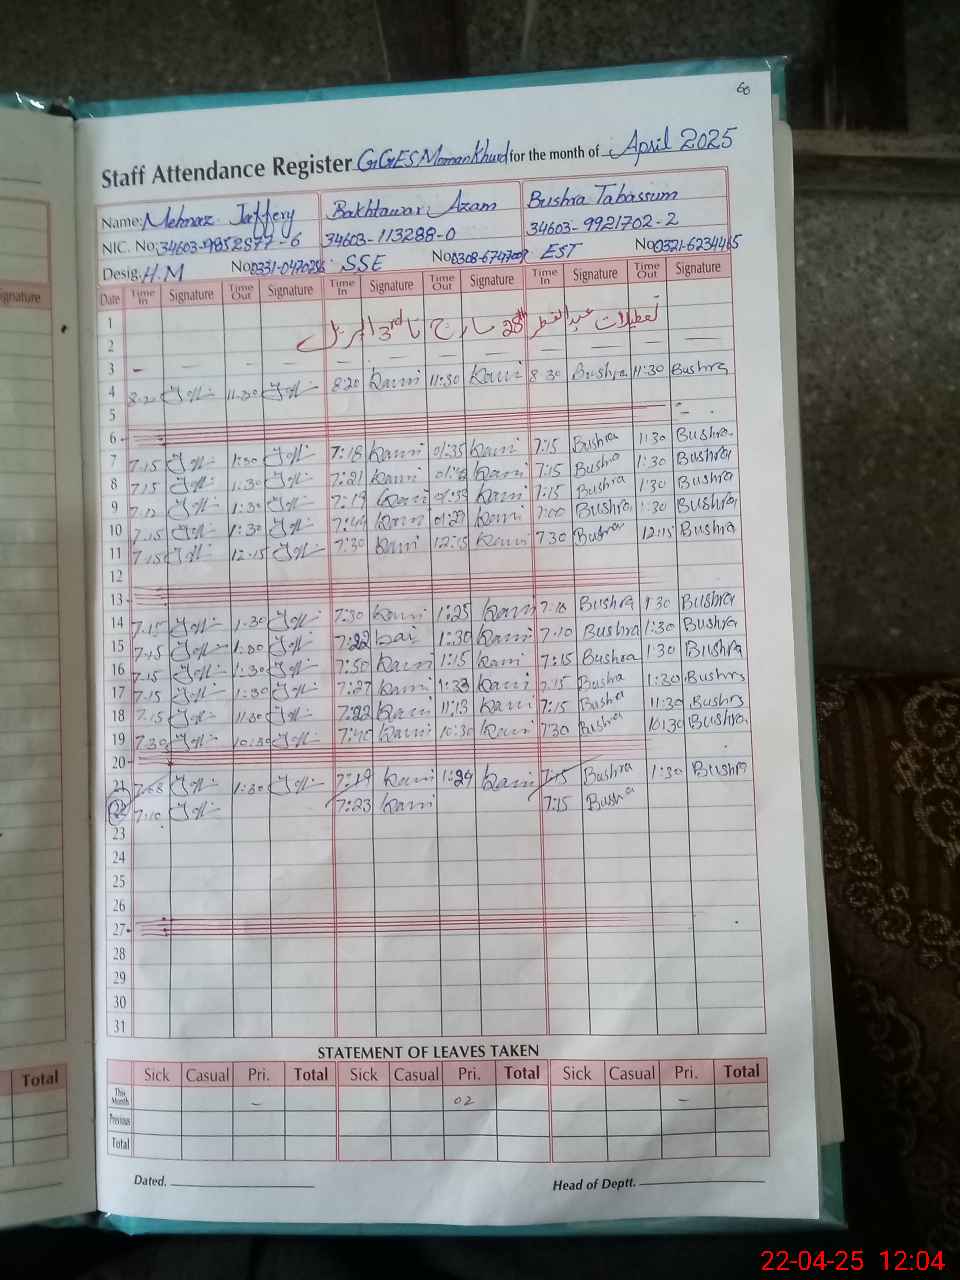 60
Staff Attendance Register GGES Moman Khurd for the month of April 2025
Name: Mehnaz Jaffery Bakhtawar Azam Bushra Tabassum
NIC. No: 34603-9852877-6 34603-113288-0 34603-9921702-2
Desig. H.M No SSE No EST No
Date Time In Signature Time Out Signature Time In Signature Time Out Signature Time In Signature Time Out Signature
1 تعطیلات عید الفطر 28th مارچ تا 3rd اپریل
2
3 - - - - - - - - - - -
4 8:20 11:30 8:20 Rani 11:30 Rani 8:30 Bushra 11:30 Bushra
5
6
7 7:15 1:30 7:18 Rani 01:35 Rani 7:15 Bushra 1:30 Bushra
8 7:15 1:30 7:21 Rani Rani 7:15 Bushra 1:30 Bushra
9 1:30 7:19 Rani Rani 7:15 Bushra 1:30 Bushra
10 7:15 1:30 Rani 01:27 Rani 7:00 Bushra 1:30 Bushra
11 7:15 12:15 7:30 Rani 12:15 Rani 7:30 Bushra 12:15 Bushra
12
13
14 7:15 1:30 7:30 Rani 1:25 Rani 7:10 Bushra 1:30 Bushra
15 7:15 1:30 7:22 1:30 Rani 7:10 Bushra 1:30 Bushra
16 7:15 1:30 7:50 Rani 1:15 Rani 7:15 Bushra 1:30 Bushra
17 7:15 1:30 7:27 Rani 1:33 Rani 7:15 Bushra 1:30 Bushra
18 7:15 11:30 7:22 Rani 11:13 Rani 7:15 Bushra 11:30 Bushra
19 7:30 10:30 7:40 Rani 10:30 Rani 7:30 Bushra 10:30 Bushra
20
21 1:30 7:19 Rani 1:29 Rani 7:15 Bushra 1:30 Bushra
22 7:10 7:23 Rani 7:15 Bushra
23
24
25
26
27
28
29
30
31
STATEMENT OF LEAVES TAKEN
Total Sick Casual Pri. Total Sick Casual Pri. Total Sick Casual Pri. Total
This Month - 02 -
Previous
Total
Dated. Head of Deptt.
22-04-25 12:04